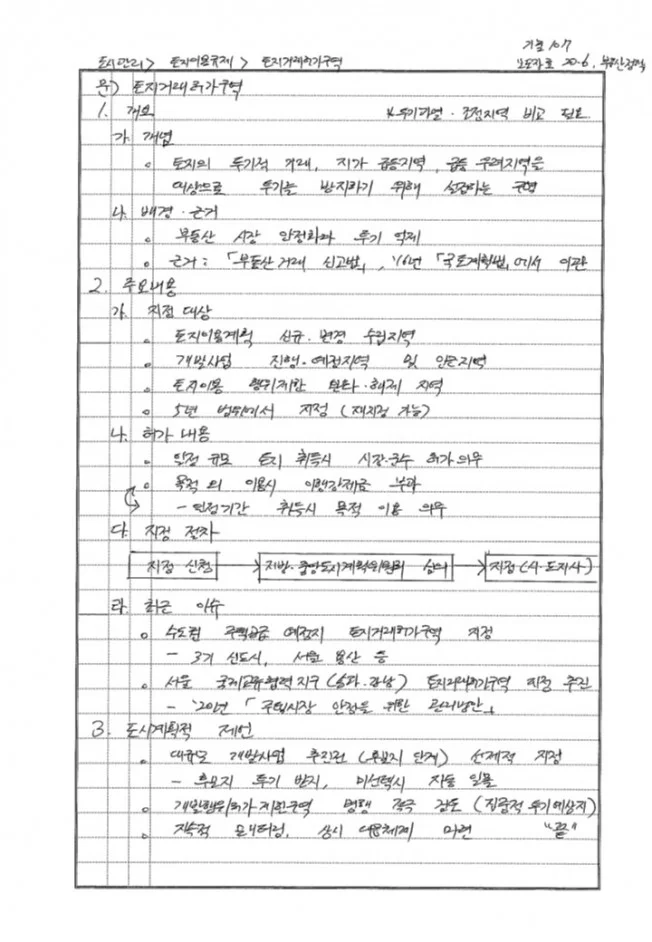 기출 107
도시관리> 토지이용규제 > 토지거래허가구역
보도자료 20.6, 부동산정책
문) 토지거래허가구역
1. 개요 * 투기과열·조정지역 비교 필요
가. 개념
○ 토지의 투기적 거래, 지가 급등지역, 급등 우려지역을
대상으로 투기를 방지하기 위해 설정하는 구역
나. 배경·근거
○ 부동산 시장 안정화와 투기 억제
○ 근거: 「부동산거래 신고법」, '16년 「국토계획법」에서 이관
2. 주요내용
가. 지정 대상
○ 토지이용계획 신규·변경 수립지역
○ 개발사업 진행·예정지역 및 인근지역
○ 토지이용 행위제한 완화·해제 지역
○ 5년 범위에서 지정 (재지정 가능)
나. 허가 내용
○ 일정 규모 토지 취득시 시장·군수 허가 의무
○ 목적 외 이용시 이행강제금 부과
- 일정기간 취득시 목적 이용 의무
다. 지정 절차
지정 신청 → 지방·중앙도시계획위원회 심의 → 지정 (시·도지사)
라. 최근 이슈
○ 수도권 주택공급 예정지 토지거래허가구역 지정
- 3기 신도시, 서울 용산 등
○ 서울 국제교류협력지구 (송파·강남) 토지거래허가구역 지정 추진
- '20년 「주택시장 안정을 위한 관리방안」
3. 도시계획적 제언
○ 대규모 개발사업 추진전 (후보지 단계) 선제적 지정
- 후보지 투기 방지, 미선정시 자동 일몰
○ 개발행위허가 제한구역 병행 적극 검토 (집중적 투기예상지)
○ 지속적 모니터링, 상시 대응체계 마련 "끝"